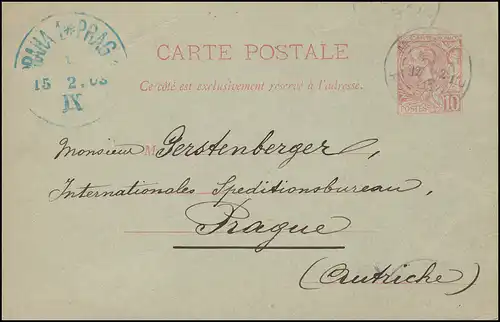 PRAHA 1 * PRAG
15 2. 03
IX
CARTE POSTALE
Ce côté est exclusivement réservé à l'adresse.
POSTES 10
Monsieur M Gerstenberger,
Internationales Speditionsbureau,
Prague
(Autriche)